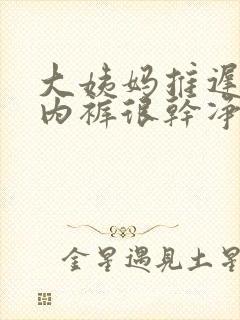 大姨妈推遲
内裤很幹净
金星遇見土星